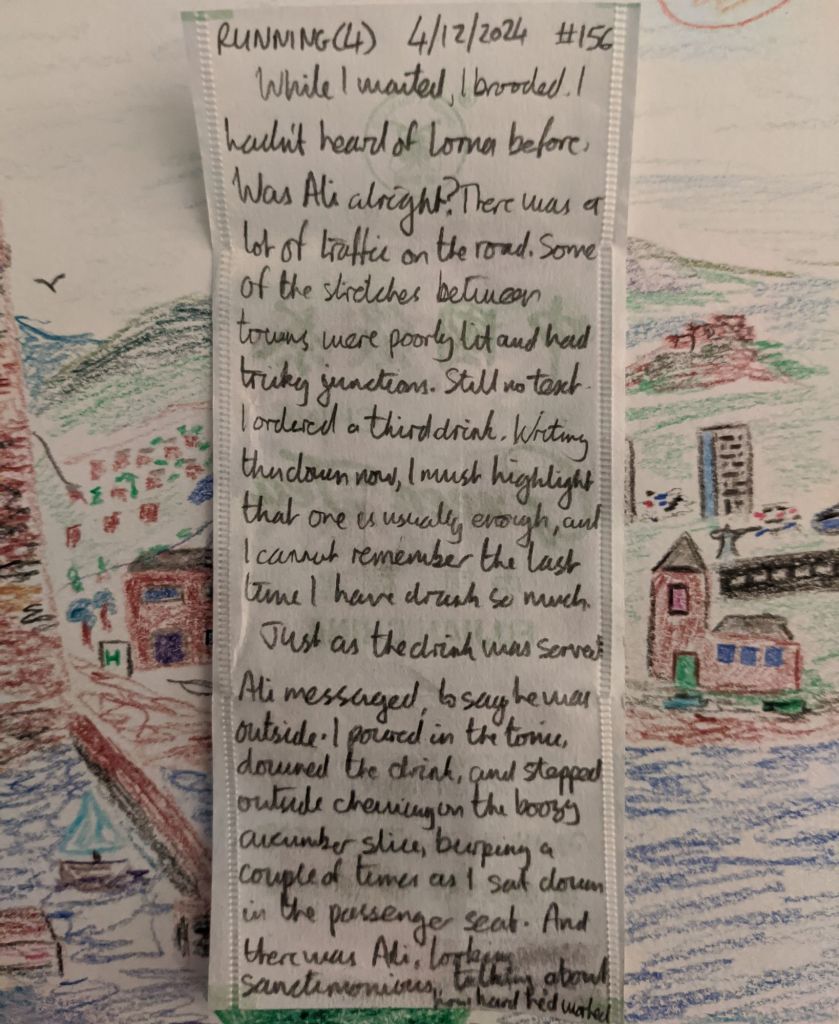 RUNNING(4) 4/12/2024 #156
While I waited, I brooded. I
hadn't heard of Lorna before.
Was Ali alright? There was a
lot of traffic on the road. Some
of the stretches between
towns were poorly lit and had
tricky junctions. Still no text.
I ordered a third drink. Writing
this down now, I must highlight
that one is usually enough, and
I cannot remember the last
time I have drunk so much.
Just as the drink was served
Ali messaged, to say he was
outside. I poured in the tonic,
downed the drink, and stepped
outside chewing on the boozy
cucumber slice, burping a
couple of times as I sat down
in the passenger seat. And
there was Ali, looking
sanctimonious, talking about
how hard he'd worked
H